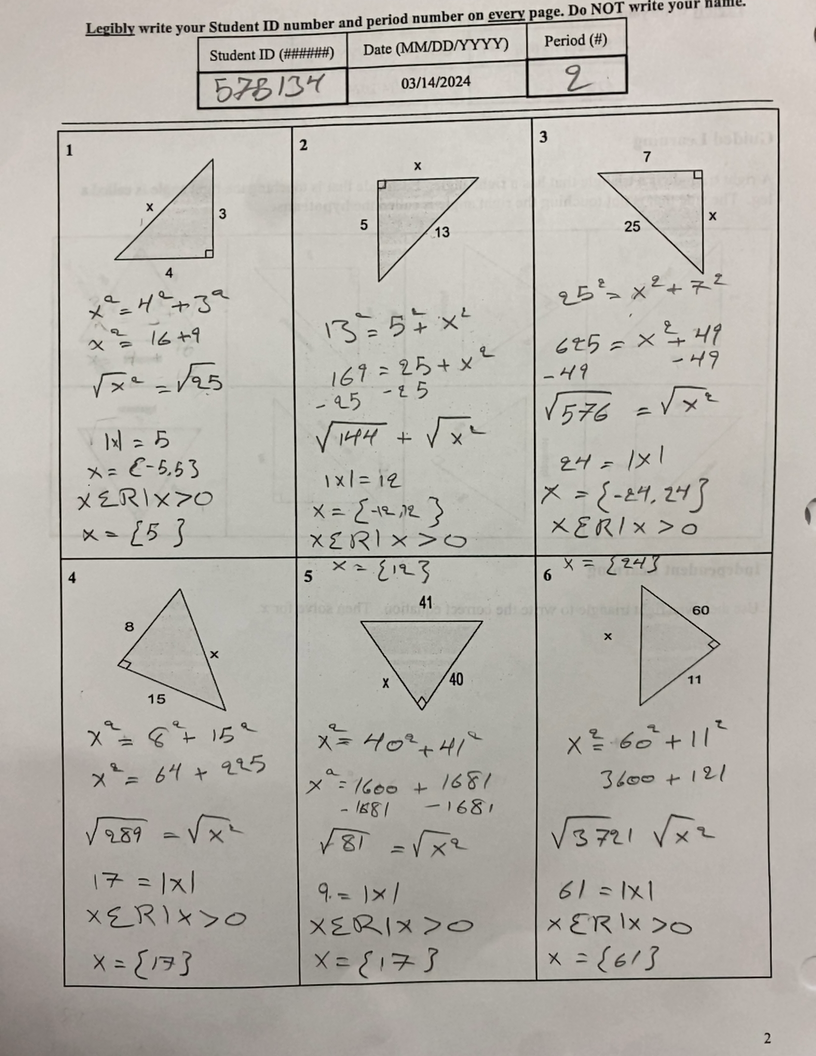 Legibly write your Student ID number and period number on every page. Do NOT write your name.
Student ID (######) Date (MM/DD/YYYY) Period (#)
578134 03/14/2024 2
1
x
3
4
x² = 4² + 3²
x² = 16 + 9
√x² = √25
|x| = 5
x = {-5,5}
XΣR|X>0
x = {5}
2
x
5
13
13² = 5² + x²
169 = 25 + x²
-25 -25
√144 + √x²
|x| = 12
x = {-12,12}
XΣR|X>0
x = {12}
3
7
25
x
25² = x² + 7²
625 = x² + 49
-49 -49
√576 = √x²
24 = |x|
x = {-24,24}
XΣR|X>0
x = {24}
4
8
x
15
x² = 8² + 15²
x² = 64 + 225
√289 = √x²
17 = |x|
XΣR|X>0
x = {17}
5
41
x
40
x² = 40² + 41²
x² = 1600 + 1681
-1681 -1681
√81 = √x²
9 = |x|
XΣR|X>0
x = {17}
6
60
x
11
x² = 60² + 11²
3600 + 121
√3721 √x²
61 = |x|
XΣR|X>0
x = {61}
2